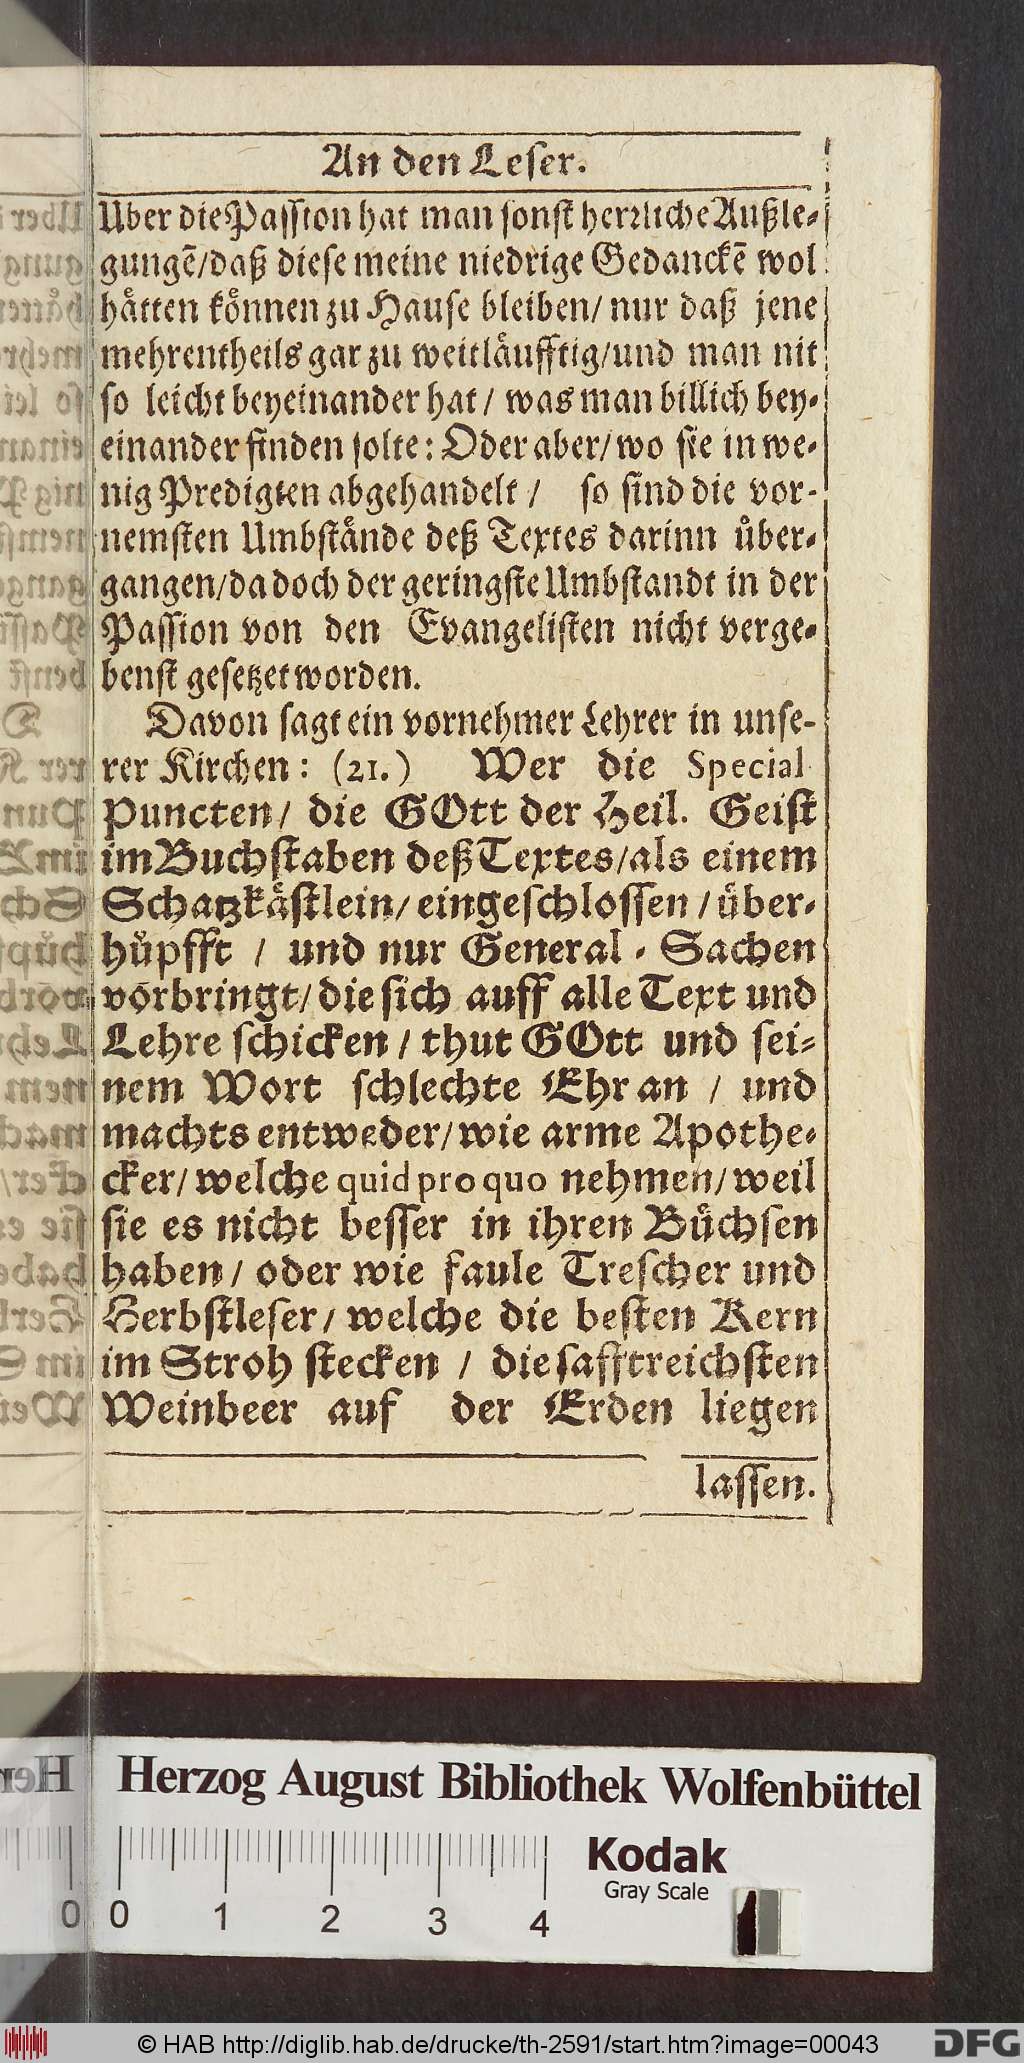 An den Leſer.
Uber die Paſſion hat man ſonſt herꝛliche Außle-
gungē/daß dieſe meine niedrige Gedanckē wol
haͤtten koͤnnen zu Hauſe bleiben/ nur daß jene
mehrentheils gar zu weitlaͤufftig/und man nit
ſo leicht beyeinander hat / was man billich bey-
einander finden ſolte: Oder aber/wo ſie in we-
nig Predigten abgehandelt / ſo ſind die vor-
nemſten Umbſtaͤnde deß Textes darinn uͤber-
gangen/da doch der geringſte Umbſtandt in der
Paſſion von den Evangeliſten nicht verge-
benſt geſetzet worden.
Davon ſagt ein vornehmer Lehrer in unſe-
rer Kirchen: (21.) Wer die Special
Puncten/ die GOtt der Heil. Geiſt
im Buchſtaben deß Textes/als einem
Schatzkaͤſtlein/ eingeſchloſſen / uͤber-
huͤpfft / und nur General-Sachen
vorbringt/ die ſich auff alle Text und
Lehre ſchicken / thut GOtt und ſei-
nem Wort ſchlechte Ehr an / und
machts entweder/ wie arme Apothe-
cker/ welche quid pro quo nehmen/ weil
ſie es nicht beſſer in ihren Buͤchſen
haben / oder wie faule Treſcher und
Herbſtleſer / welche die beſten Kern
im Stroh ſtecken / die ſafftreichſten
Weinbeer auf der Erden liegen
laſſen.
Herzog August Bibliothek Wolfenbüttel
Kodak
Gray Scale
0 0 1 2 3 4
© HAB http://diglib.hab.de/drucke/th-2591/start.htm?image=00043
DFG